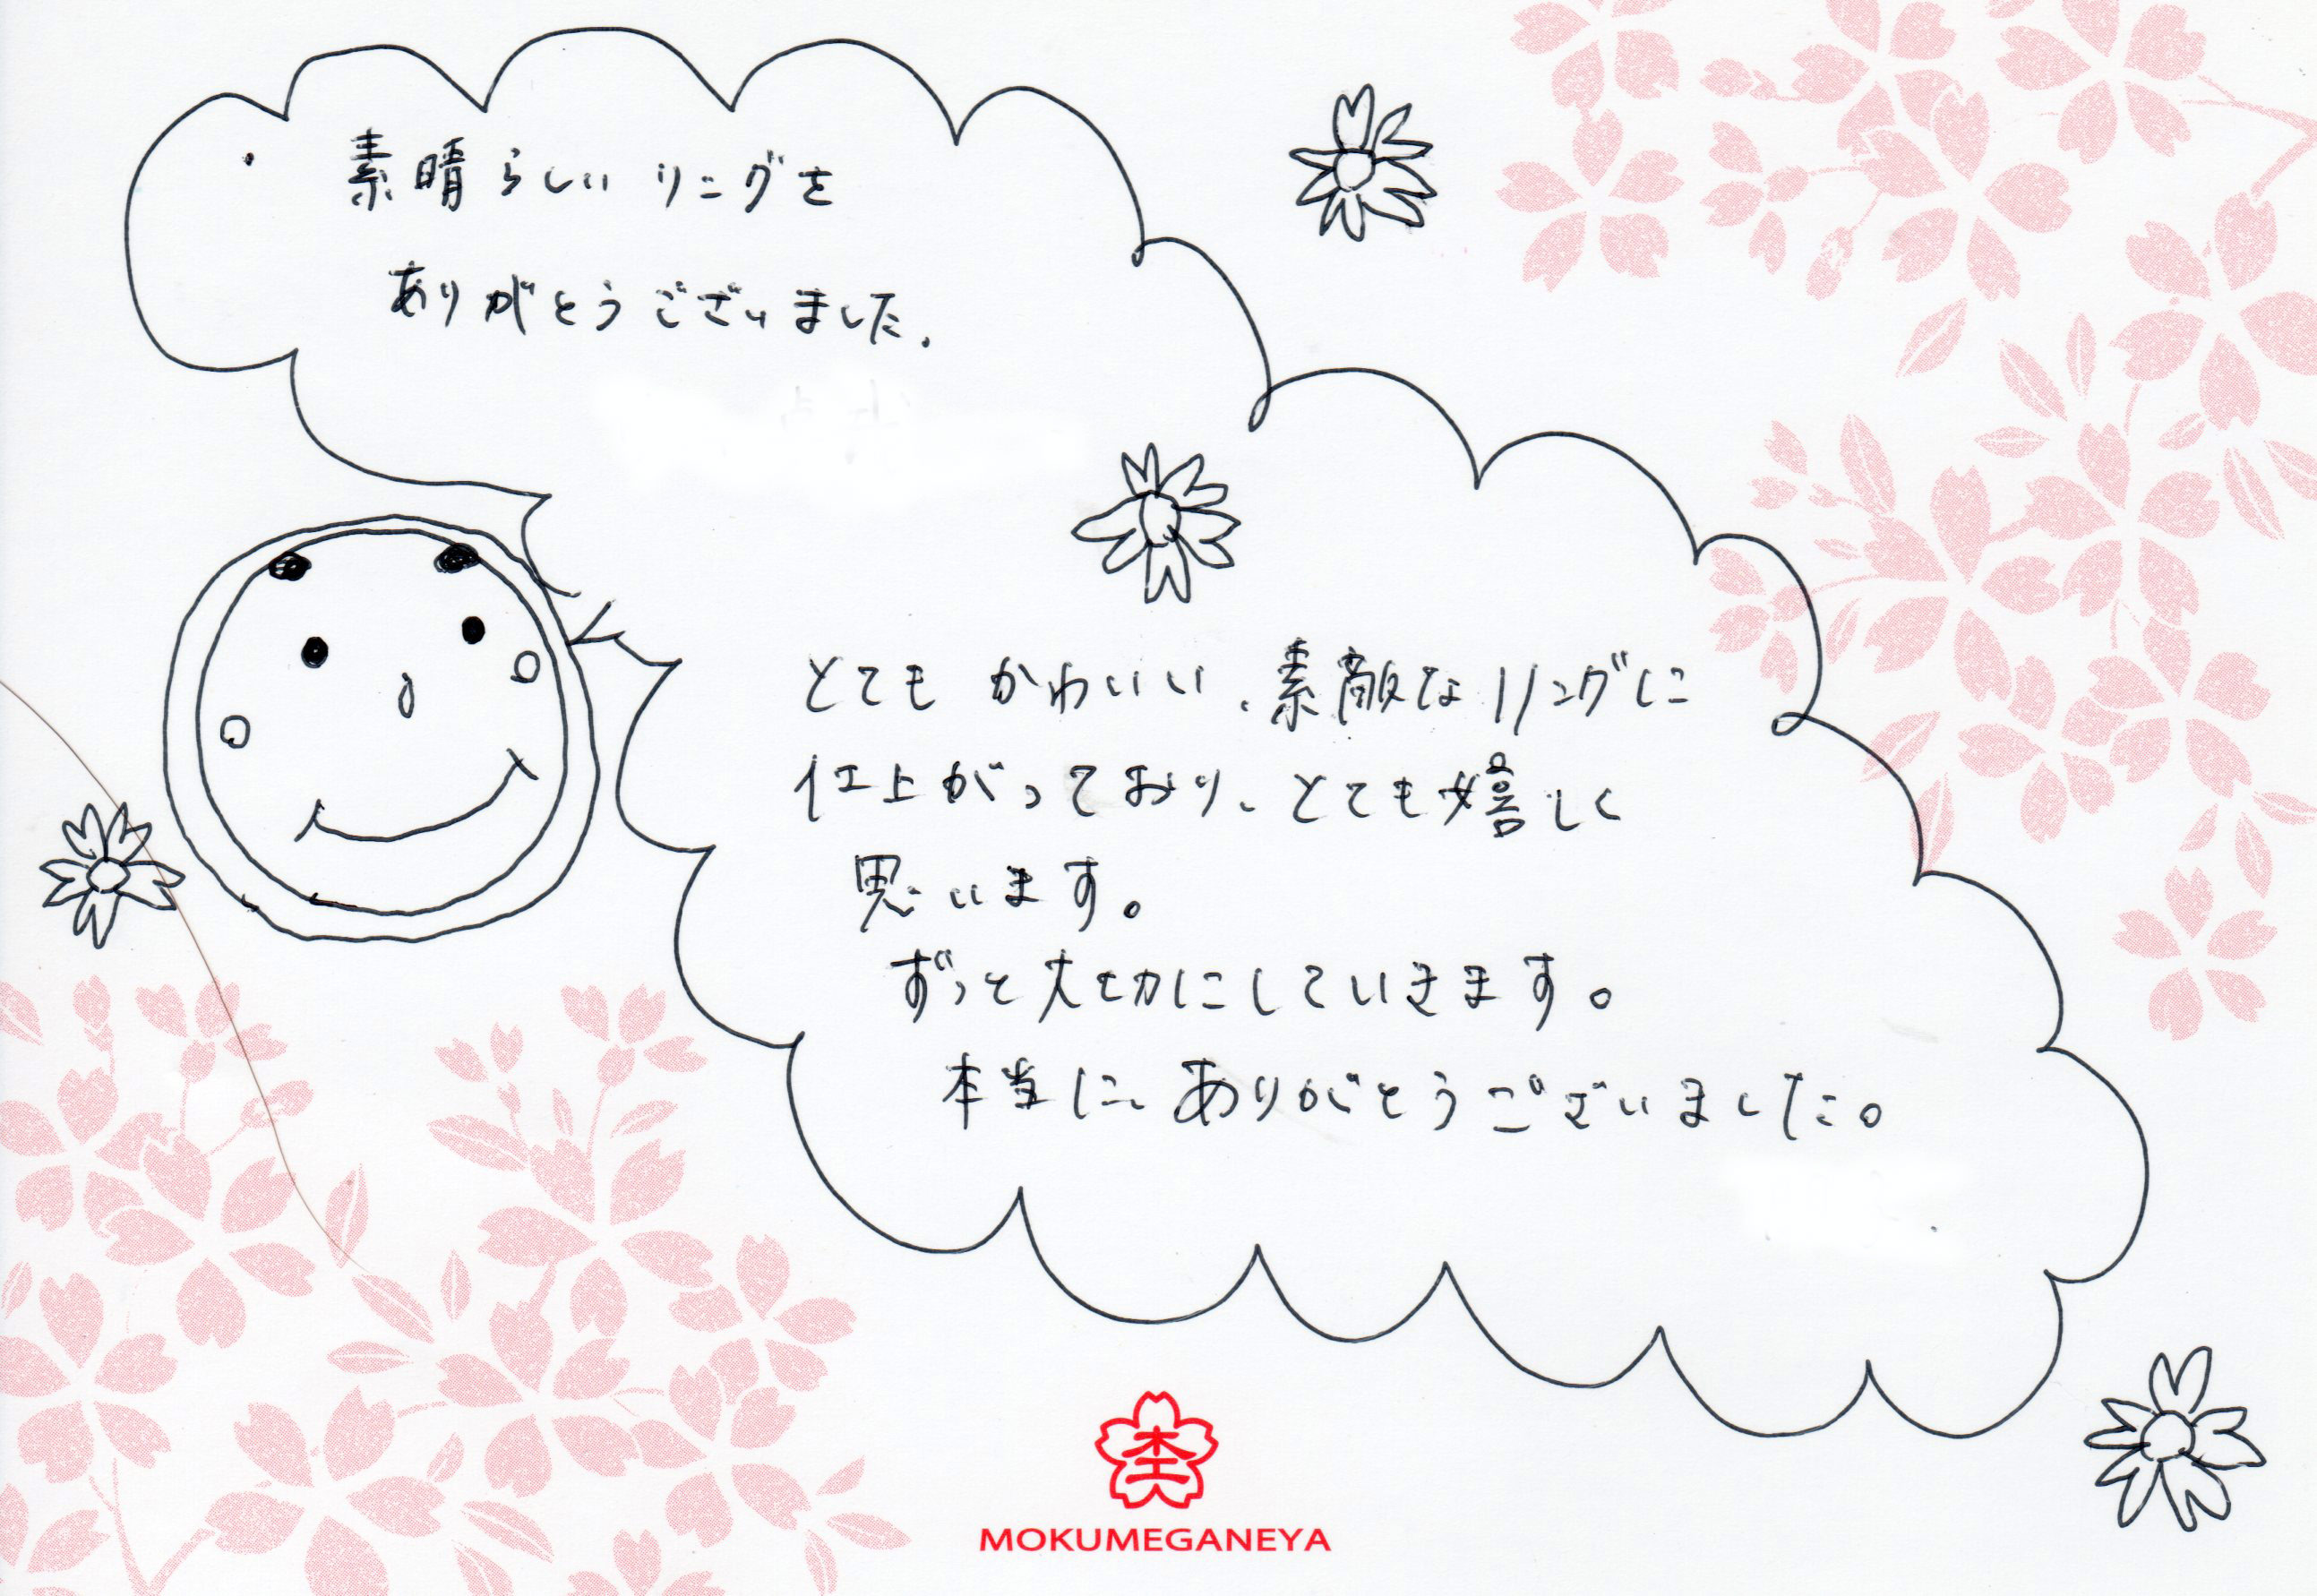 素晴らしいリングを
ありがとうございました.
とてもかわいい、素敵なリングに
仕上がっており、とても嬉しく
思います。
ずっと大切にしていきます。
本当に、ありがとうございました。
MOKUMEGANEYA